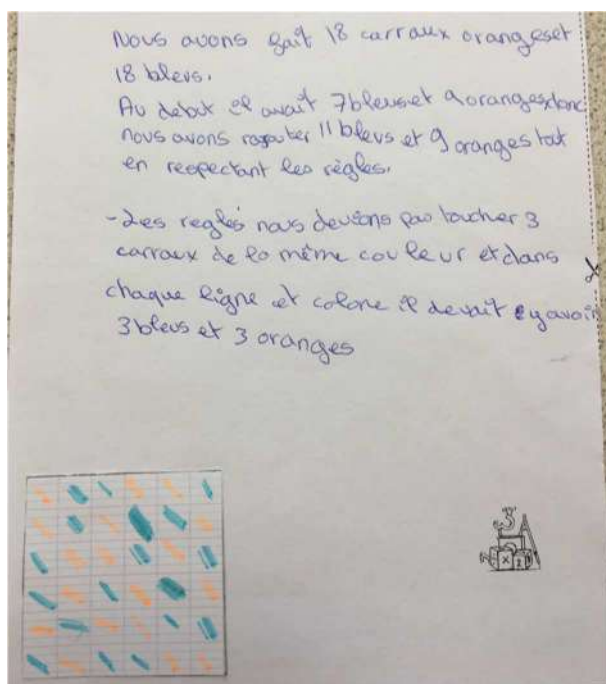 Nous avons fait 18 carraux oranges et
18 bleus.
Au debut il avait 7 bleus et 9 oranges donc
nous avons rajouter 11 bleus et 9 oranges tout
en respectant les règles.
- Les regles nous devions pas toucher 3
carraux de la même couleur et dans
chaque ligne et colone il devait y avoir
3 bleus et 3 oranges
3
2
X